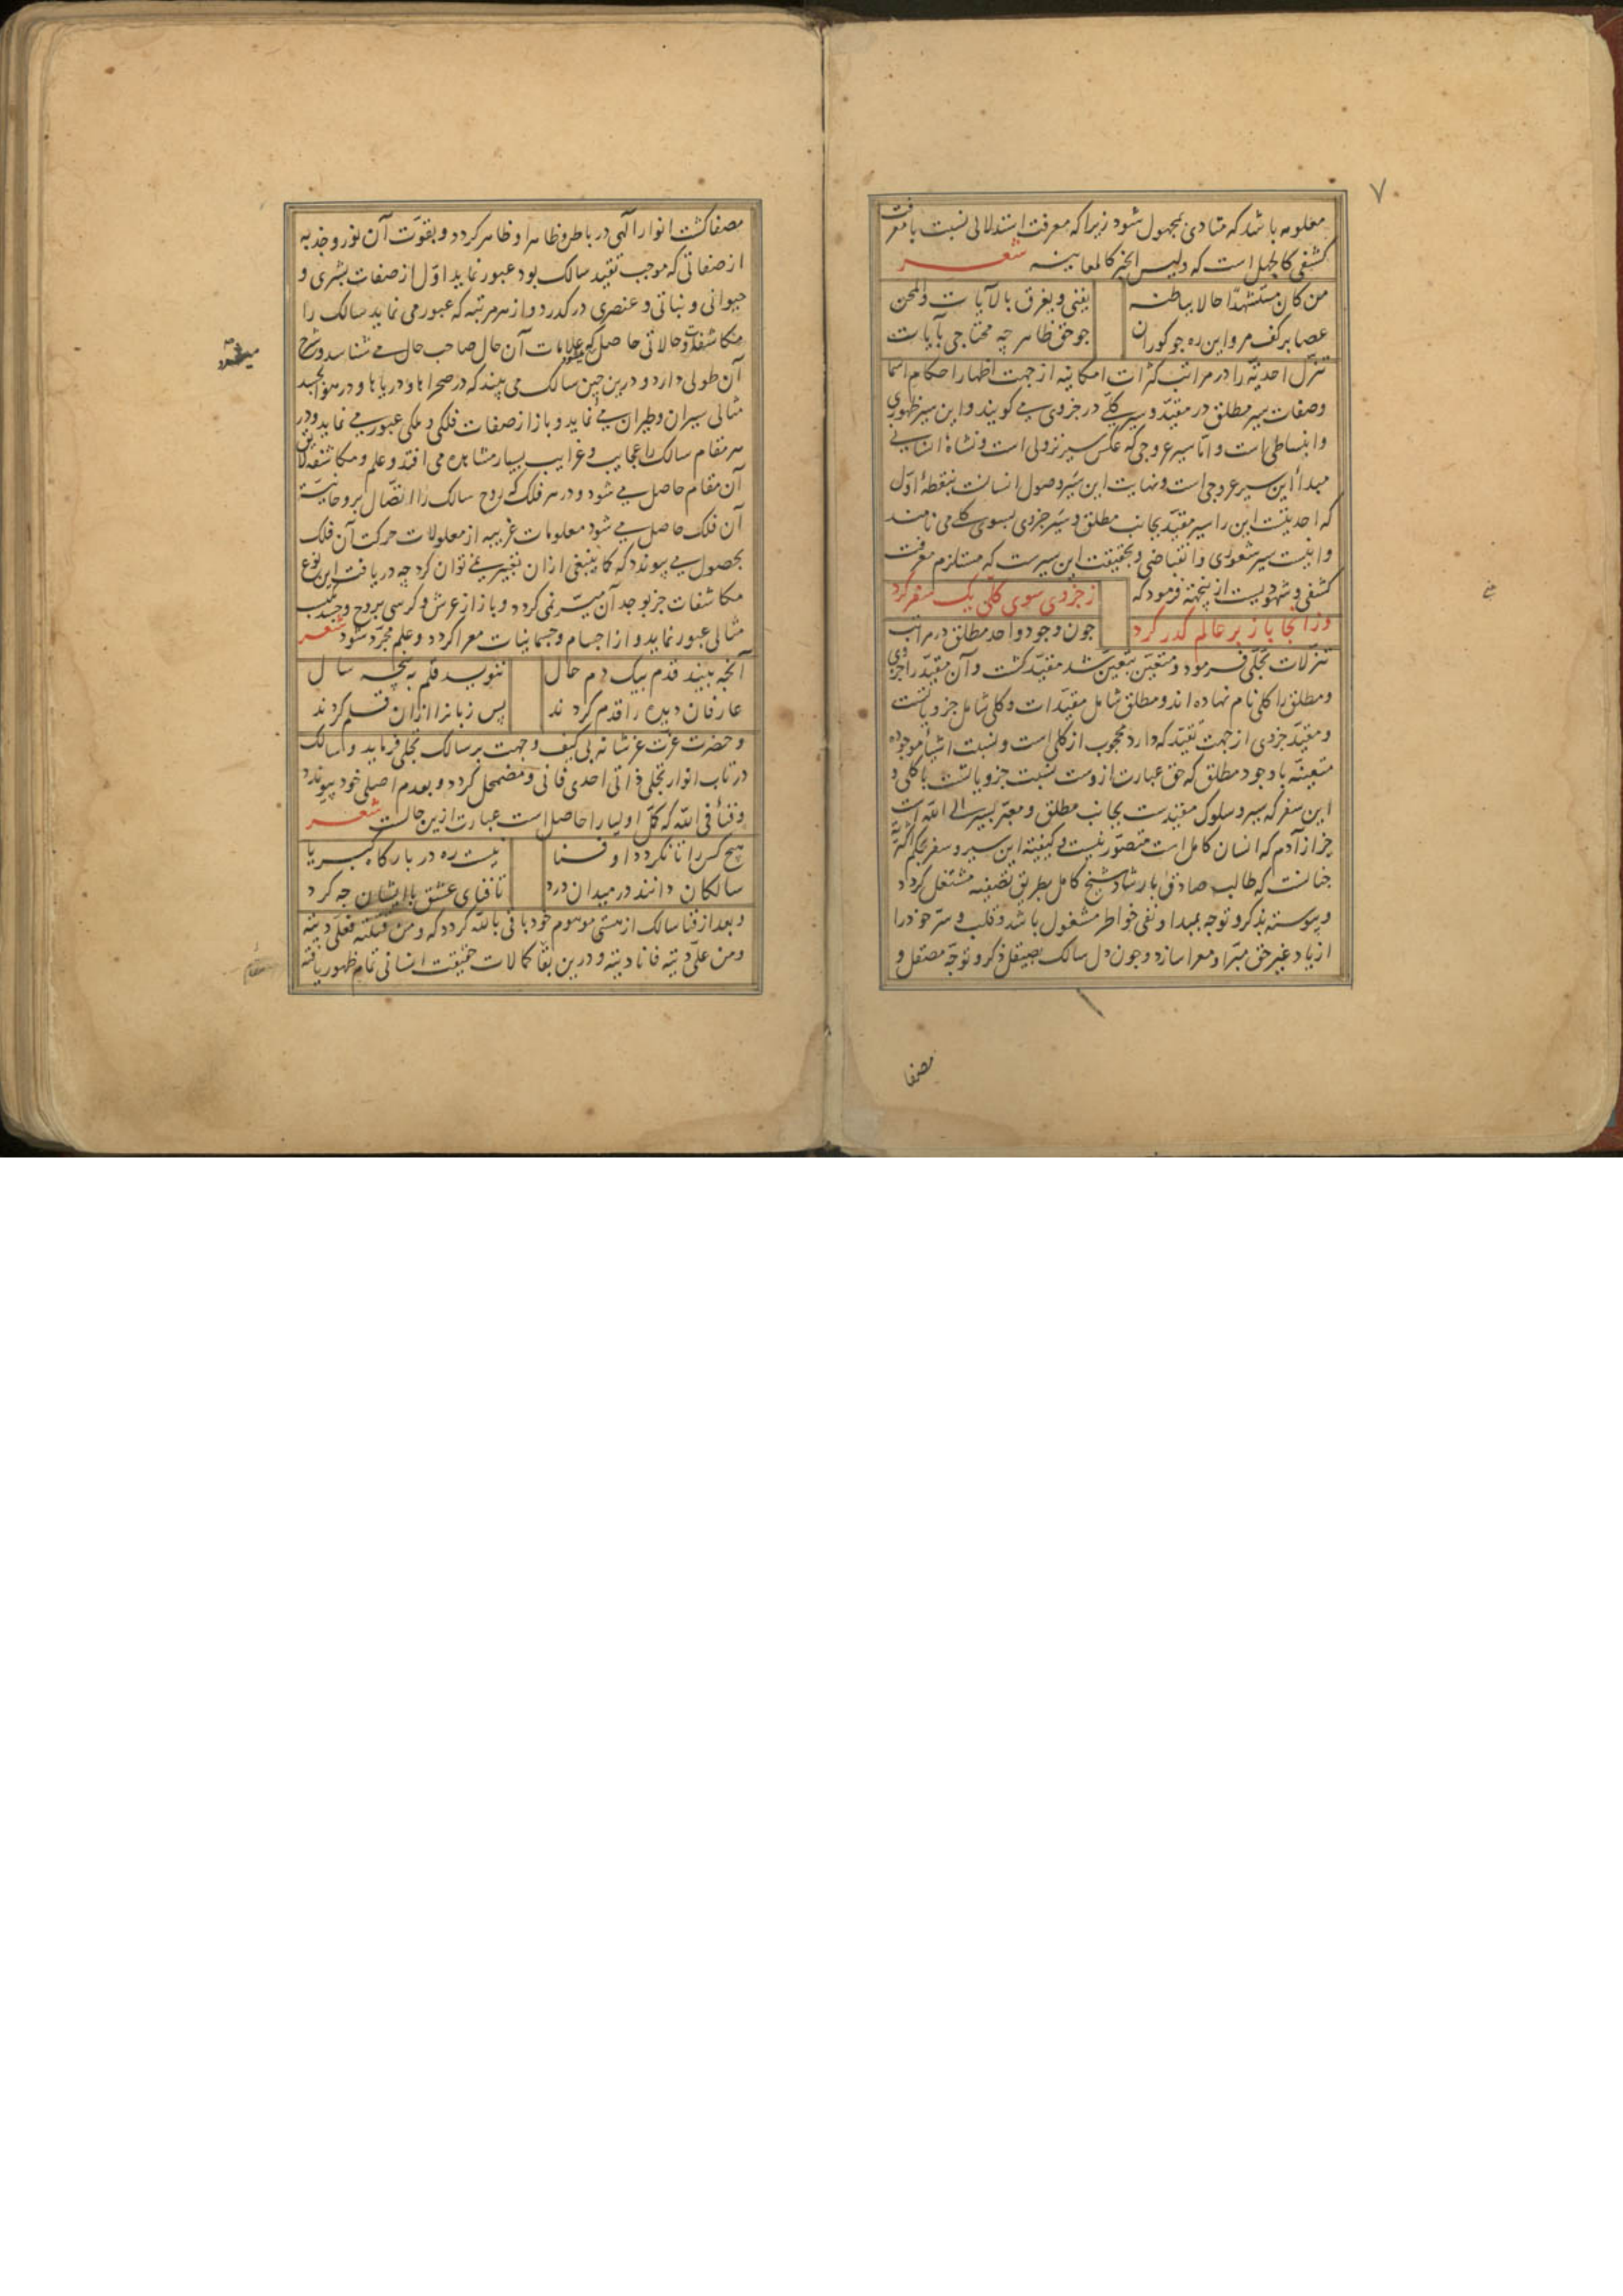 ۷
معلومه باشد که متادی بمجهول شود زیرا که معرفت استدلالی نسبت با معرفت
کشفی کالجهل است که ولیس الخبر کالمعاینه شعر
من کان مستشهدا حالا بباطنه یفنی ویغرق بالآیات والمحن
عصا بر کف مرو این ره جو کوران جو حق ظاهر چه محتاجی بآیات
تنزل احدیة را در مراتب کثرات امکانیه از جهت اظهار احکام اسما
وصفات سیر مطلق در مقید و سیر کلی در جزوی می کویند و این سیر ظهوری
و انبساطی است و اما سیر عروجی که عکس سیر نزولی است و نشاه انسانی
مبدأ این سیر عروجی است و نهایت این سیر وصول انسانست بنقطه اول
که احدیتست این را سیر مقید بجانب مطلق و سیر جزوی بسوی کلی می نامند
و اینست سیر شعوری و انقباضی و بحقیقت این سیرست که مستلزم معرفت
کشفی و شهودیست ازینجهته فرمود که ز جزوی سوی کلی یک سفر کرد
وزانجا باز بر عالم کذر کرد جون وجود واحد مطلق در مراتب
تنزلات تجلی فرمود و متعین بتعین شد مقید کشت و آن مقید را جزوی
ومطلق را کلی نام نهاده اند و مطلق شامل مقیدات و کلی شامل جزویاتست
ومقید جزوی از جهت تقید که دارد محجوب از کلی است و نسبت اشیأ موجوده
متعینه با وجود مطلق که حق عبارت ازوست نسبت جزویاتست با کلی و
این سفر که سیر و سلوک مقیدست بجانب مطلق و معبر بسیر الی الله است
جز از آدم که انسان کامل است متصور نیست و کیفیته این سیر و سفر بحکم اکثریة
جنانست که طالب صادق بارشاد شیخ کامل بطریق تصفیه مشتغل کردد
و پیوسته بذکر و توجه بمبدا و نفی خواطر مشغول باشد و قلب و سر خود را
از یاد غیر حق مبرا و معرا سازد و جون دل سالک بصیقل ذکر و توجه مصقل و
مصفا
مصفا کشت انوار الهی در باطن و ظاهر او ظاهر کردد و بقوت آن نور و جذبه
از صفاتی که موجب تقید سالک بود عبور نماید اول از صفات بشری و
حیوانی و نباتی و عنصری در کذرد و از هر مرتبه که عبور می نماید سالک را
مکاشفات و حالاتی حاصل میشود که علامات آن حال صاحب حال می شناسد و شرح
میشود
آن طولی دارد و درین حین سالک می بیند که در صحراها و دریاها و در هوا بجسد
مثالی سیران و طیران می نماید و باز از صفات فلکی و ملکی عبور می نماید و در
هر مقام سالک را عجایب و غرایب بسیار مشاهده می افتد و علم و مکاشفه لایق
آن مقام حاصل می شود و در هر فلک که روح سالک را اتصال بروحانیة
آن فلک حاصل می شود معلومات غریبه از معلولات حرکت آن فلک
بحصول می پیوندد که کما ینبغی ازان تعبیر نمی توان کرد چه دریافت این نوع
مکاشفات جز بوجدان میسر نمی کردد و باز از عرش و کرسی بروح و جسد مکتسب
مثالی عبور نماید و از اجسام و جسمانیات معرا کردد و علم مجرد شود شعر
آنجه بیند قدم بیک دم حال ننویسد قلم به پنجه سال
عارفان دیده را قدم کردند پس زبان را ازان قلم کردند
و حضرت عزت عز شانه بی کیف و جهت بر سالک تجلی فرماید و سالک
در تاب انوار تجلی ذاتی احدی فانی و مضمحل کردد و بعدم اصلی خود پیوندد
و فنأ فی الله که کمل اولیا را حاصل است عبارت ازین حالست شعر
هیچ کس را تا نکردد او فنا نیست ره در بارکاه کبریا
سالکان دانند در میدان درد تا فنای عشق با ایشان جه کرد
و بعد از فنا سالک از هستی موهوم خود باقی بالله کردد که و من قتلته فعلی دیته
ومن علی دیته فانا دیته و درین بقا کمالات حقیقت انسانی تمام ظهور یافته